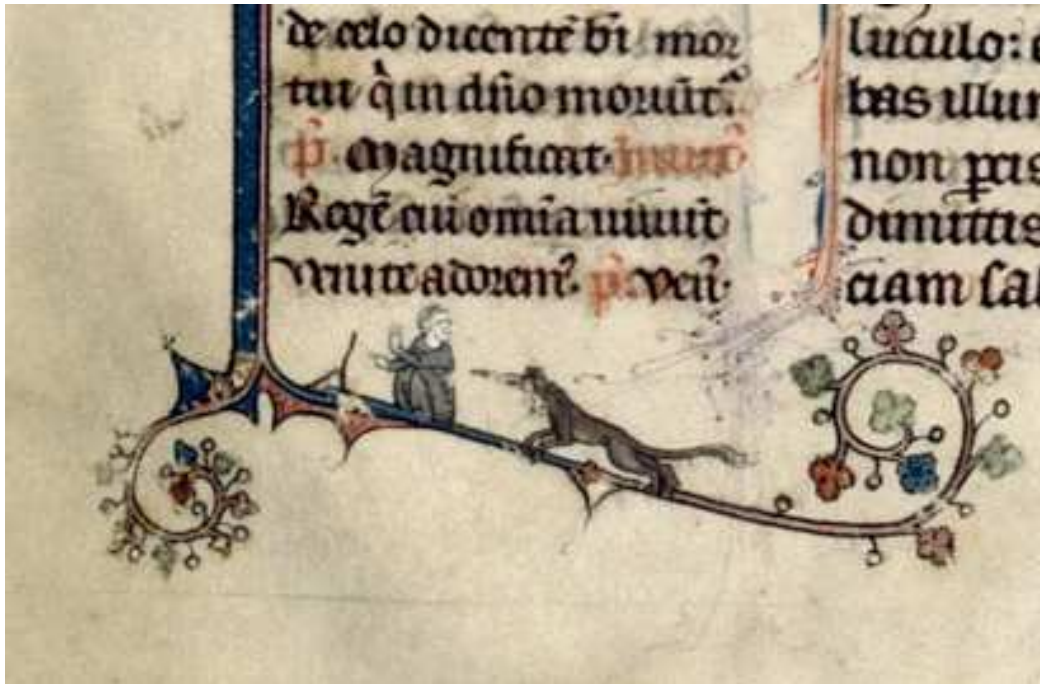 de celo dicentē bt̄i mor
tui q̄ in dn̄o moriūt᷑.
p̄. Magnificat. Inuit᷑
Regē cui om̄ia uiuūt
Venite adorem᷑. p̄. Ven̄.
luculo: 
bas illum
non p̱cis
dimittis
ciam sal